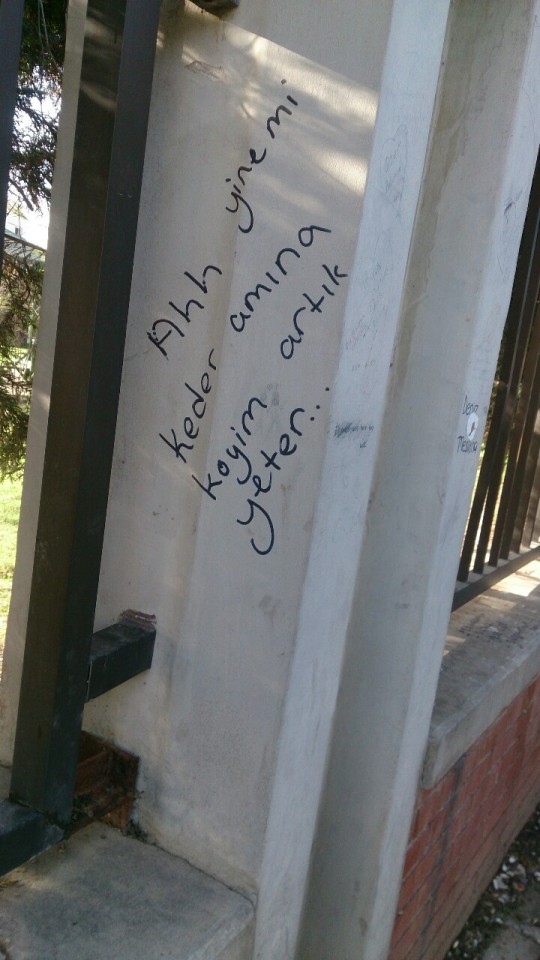 Ahh yine mi
keder amına
koyim artık
yeter...
Deniz